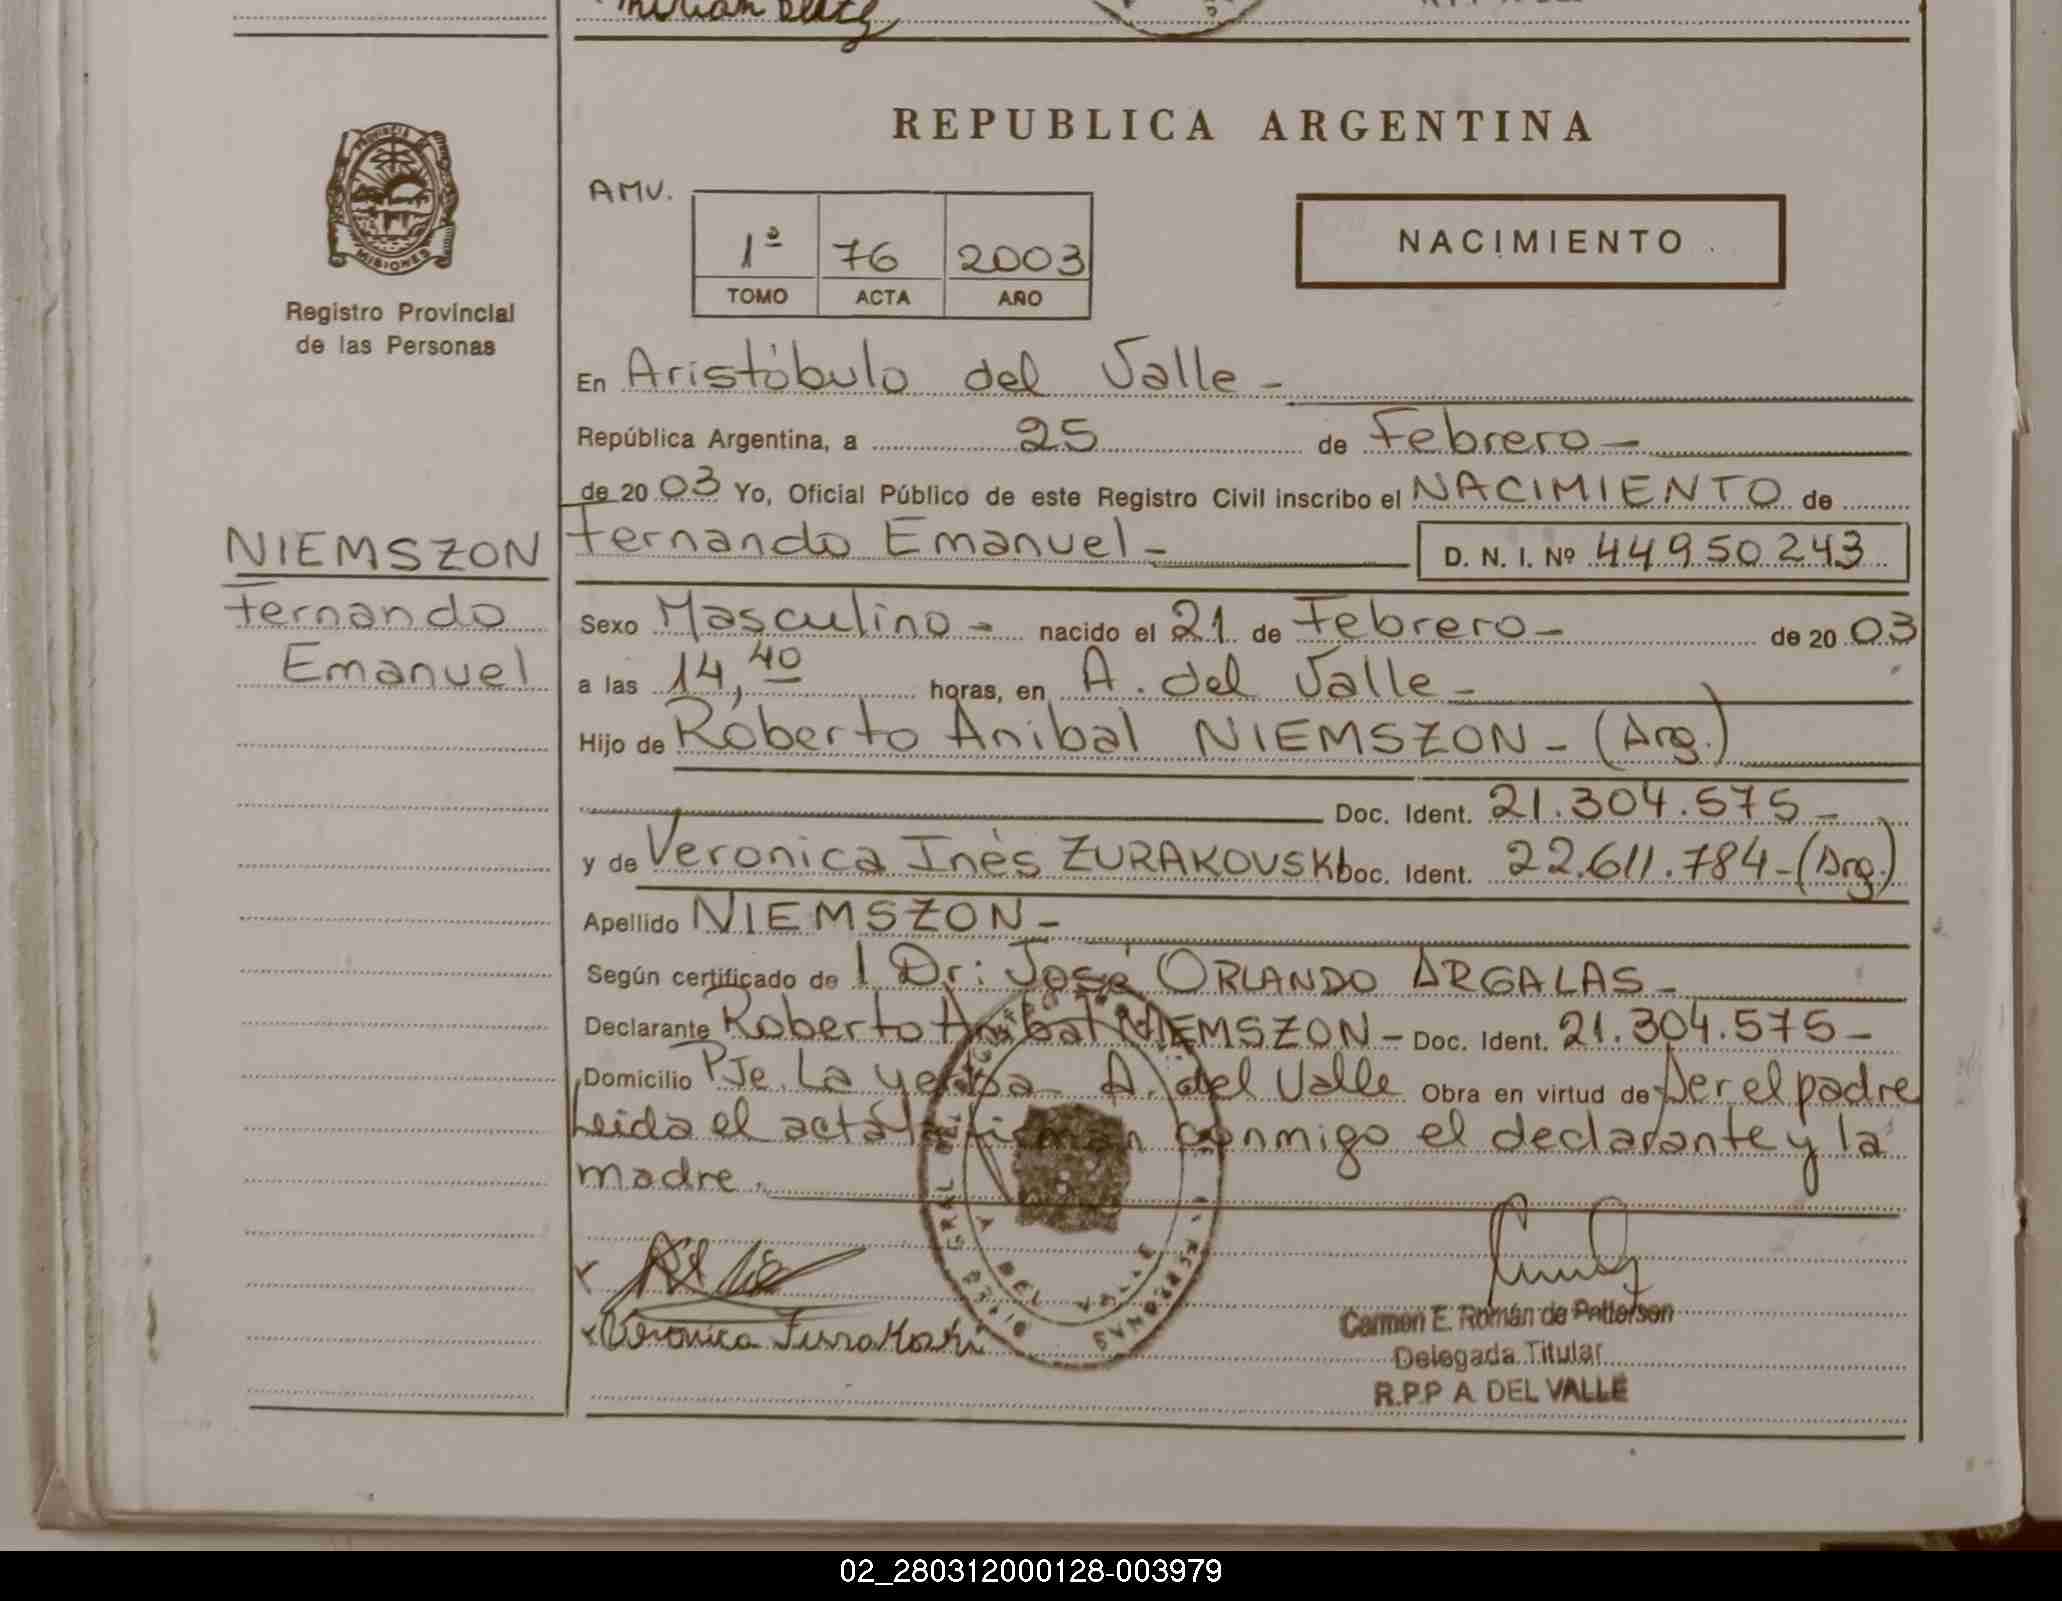 REPUBLICA ARGENTINA
PROVINCIA DE MISIONES
Registro Provincial
de las Personas
AMV.
1º 76 2003
TOMO ACTA AÑO
NACIMIENTO
En Aristóbulo del Valle -
República Argentina, a 25 de Febrero -
de 20 03 Yo, Oficial Público de este Registro Civil inscribo el NACIMIENTO de
NIEMSZON
Fernando
Emanuel
Fernando Emanuel - D. N. I. Nº 44950243
Sexo Masculino - nacido el 21 de Febrero - de 20 03
a las 14,40 horas, en A. del Valle -
Hijo de Roberto Anibal NIEMSZON - (Arg.)
Doc. Ident. 21.304.575 -
y de Veronica Inés ZURAKOVSKI Doc. Ident. 22.611.784 - (Arg.)
Apellido NIEMSZON -
Según certificado de l Dr: José ORLANDO ARGALAS -
Declarante Roberto Anibal NIEMSZON - Doc. Ident. 21.304.575 -
Domicilio PJe. La yerba - A. del Valle Obra en virtud de Ser el padre
Leida el acta, firman conmigo el declarante y la
madre.
A DEL VALLE
PERSONAS
Veronica
Carmen E. Román de Patterson
Delegada Titular
R.P.P A. DEL VALLE
02_280312000128-003979